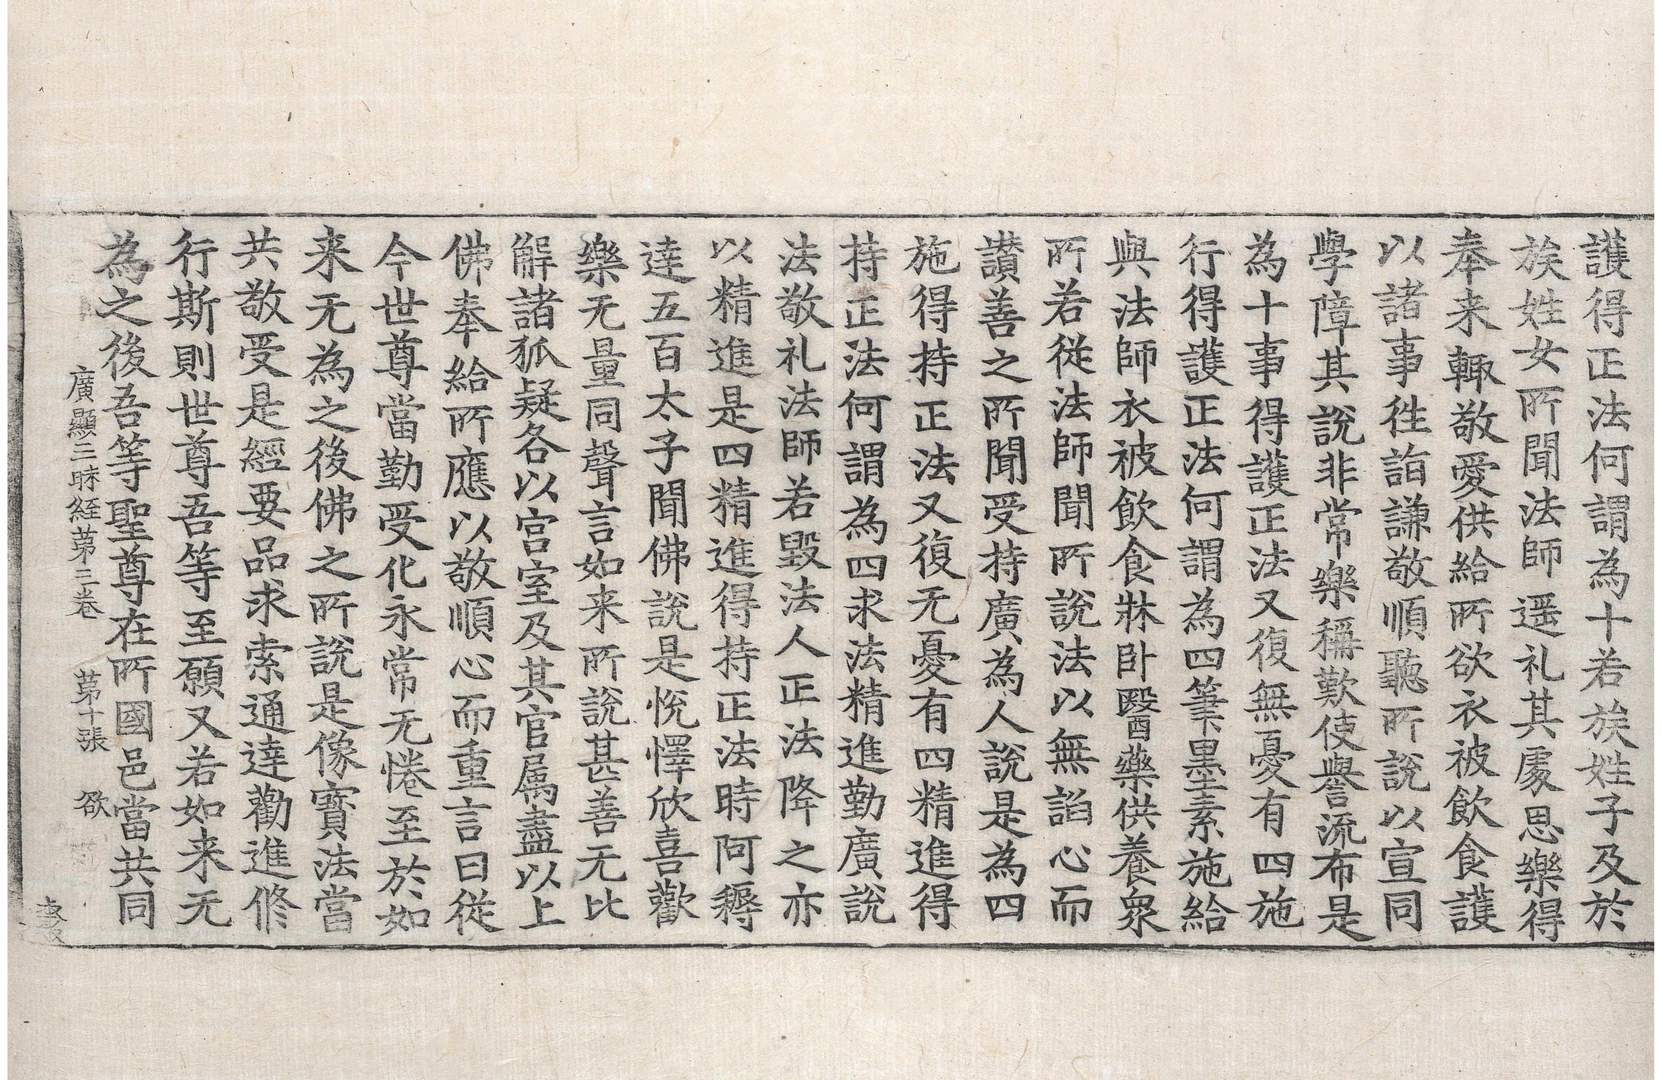 護得正法何謂為十若族姓子及於
族姓女所聞法師遥礼其處思樂得
奉来輙敬愛供給所欲衣被飲食護
以諸事徃詣謙敬順聽所說以宣同
學障其說非常樂稱歎使譽流布是
為十事得護正法又復無憂有四施
行得護正法何謂為四筆墨素施給
與法師衣被飲食牀卧醫藥供養衆
所若從法師聞所說法以無諂心而
讃善之所聞受持廣為人說是為四
施得持正法又復无憂有四精進得
持正法何謂為四求法精進勤廣說
法敬礼法師若毀法人正法降之亦
以精進是四精進得持正法時阿耨
達五百太子聞佛說是恱懌欣喜歡
樂无量同聲言如来所說甚善无比
解諸狐疑各以宫室及其官属盡以上
佛奉給所應以敬順心而重言曰從
今世尊當勤受化永常无惓至於如
来无為之後佛之所說是像寳法當
共敬受是經要品求索通達勸進修
行斯則世尊吾等至願又若如来无
為之後吾等聖尊在所國邑當共同
廣顯三昧経苐三卷 苐十張 欲